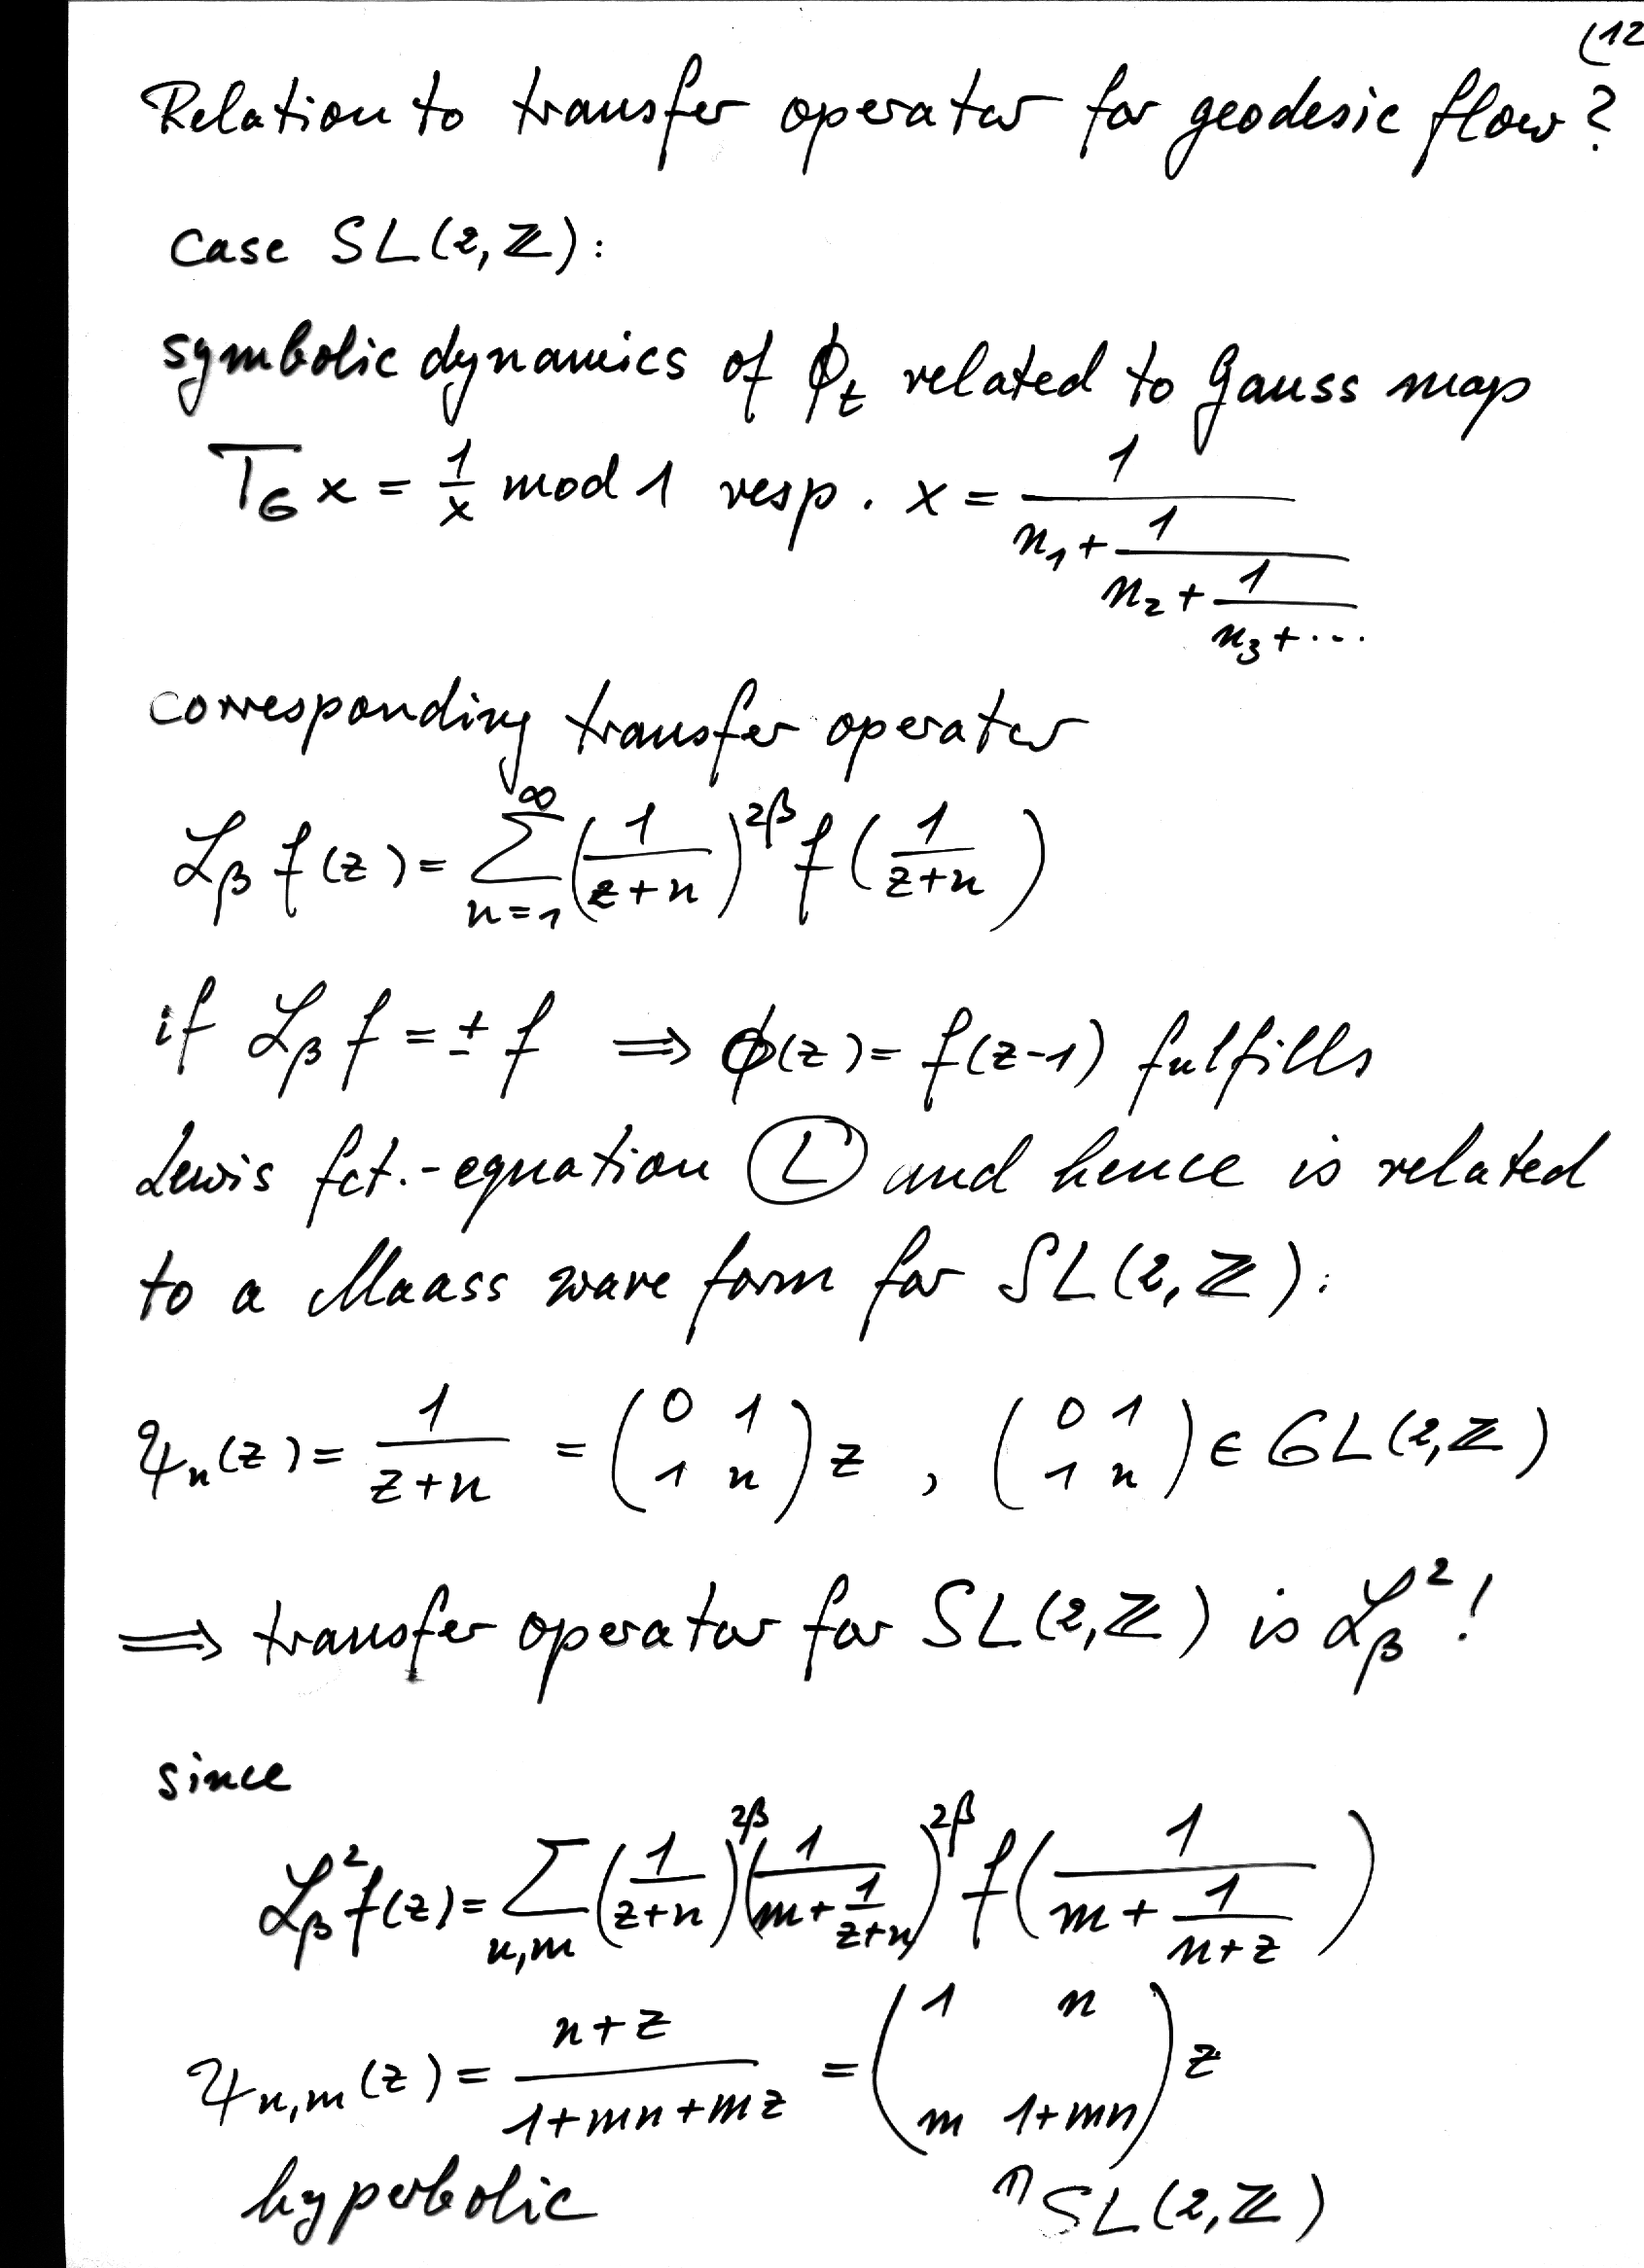 (12
Relation to transfer operator for geodesic flow?
Case SL(2,ℤ):
symbolic dynamics of ϕ_t related to Gauss map
T_G x = 1/x mod 1 resp. x = 1/(n₁ + 1/(n₂ + 1/(n₃ + ...
corresponding transfer operator
ℒ_β f(z) = ∑_{n=1}^∞ (1/(z+n))^{2β} f(1/(z+n))
if ℒ_β f = ± f ⟹ ϕ(z) = f(z-1) fulfills
Lewis fct.-equation (L) and hence is related
to a Maass wave form for SL(2,ℤ):
ψ_n(z) = 1/(z+n) = (0 1; 1 n) z , (0 1; 1 n) ∈ GL(2,ℤ)
⟹ transfer operator for SL(2,ℤ) is ℒ_β²!
since
ℒ_β² f(z) = ∑_{n,m} (1/(z+n))^{2β} (1/(m + 1/(z+n)))^{2β} f(1/(m + 1/(n+z)))
ψ_{n,m}(z) = (n+z)/(1+mn+mz) = (1 n; m 1+mn) z
hyperbolic ∈ SL(2,ℤ)